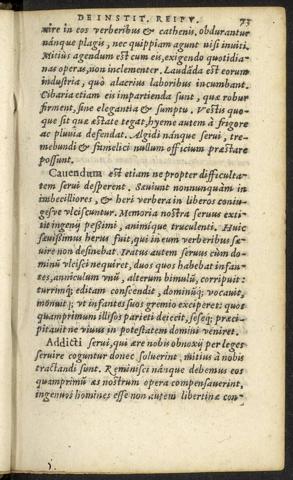 DE INSTIT. REIPV. 73
nire in eos verberibus & cathenis, obdurantur
nánque plagis, nec quippiam agunt nisi inuiti.
Mitiùs agendum est cum eis, exigendo quotidia-
nas operas, non inclementer. Laudãda est eorum
industria, quò alacrius laboribus incumbant.
Cibaria etiam eis impartienda sunt, quæ robur
firment, sine elegantia & sumptu. Vestis quo-
que sit quæ æstate tegat, hyeme autem à frigore
ac pluuia defendat. Algidi nánque serui, tre-
mebundi & famelici nullum officium præstare
possunt.
Cauendum est etiam ne propter difficulta-
tem serui desperent. Sæuiunt nonnunquàm in
imbecilliores, & heri verbera in liberos coniu-
gesve vlciscuntur. Memoria nostra seruus exti-
tit ingenij pessimi, animique truculenti. Huic
sæuissimus herus fuit, qui in eum verberibus sæ-
uire non desinebat. Iratus autem seruus cùm do-
minũ vlcisci nequiret, duos quos habebat infan-
tes, anniculum vnũ, alterum bimulũ, corripuit:
turrimq; editam conscendit, dominũq; vocauit,
monuit; vt infantes suos gremio exciperet: quos
quamprimum illisos parieti deiecit, seseq; præci-
pitauit ne viuus in potestatem domini veniret.
Addicti serui, qui ære nobis obnoxij per leges
seruire coguntur donec soluerint, mitius à nobis
tractandi sunt. Reminisci nánque debemus eos
quamprimũ æs nostrum opera compensauerint,
ingenuos homines esse non autem libertinæ con-